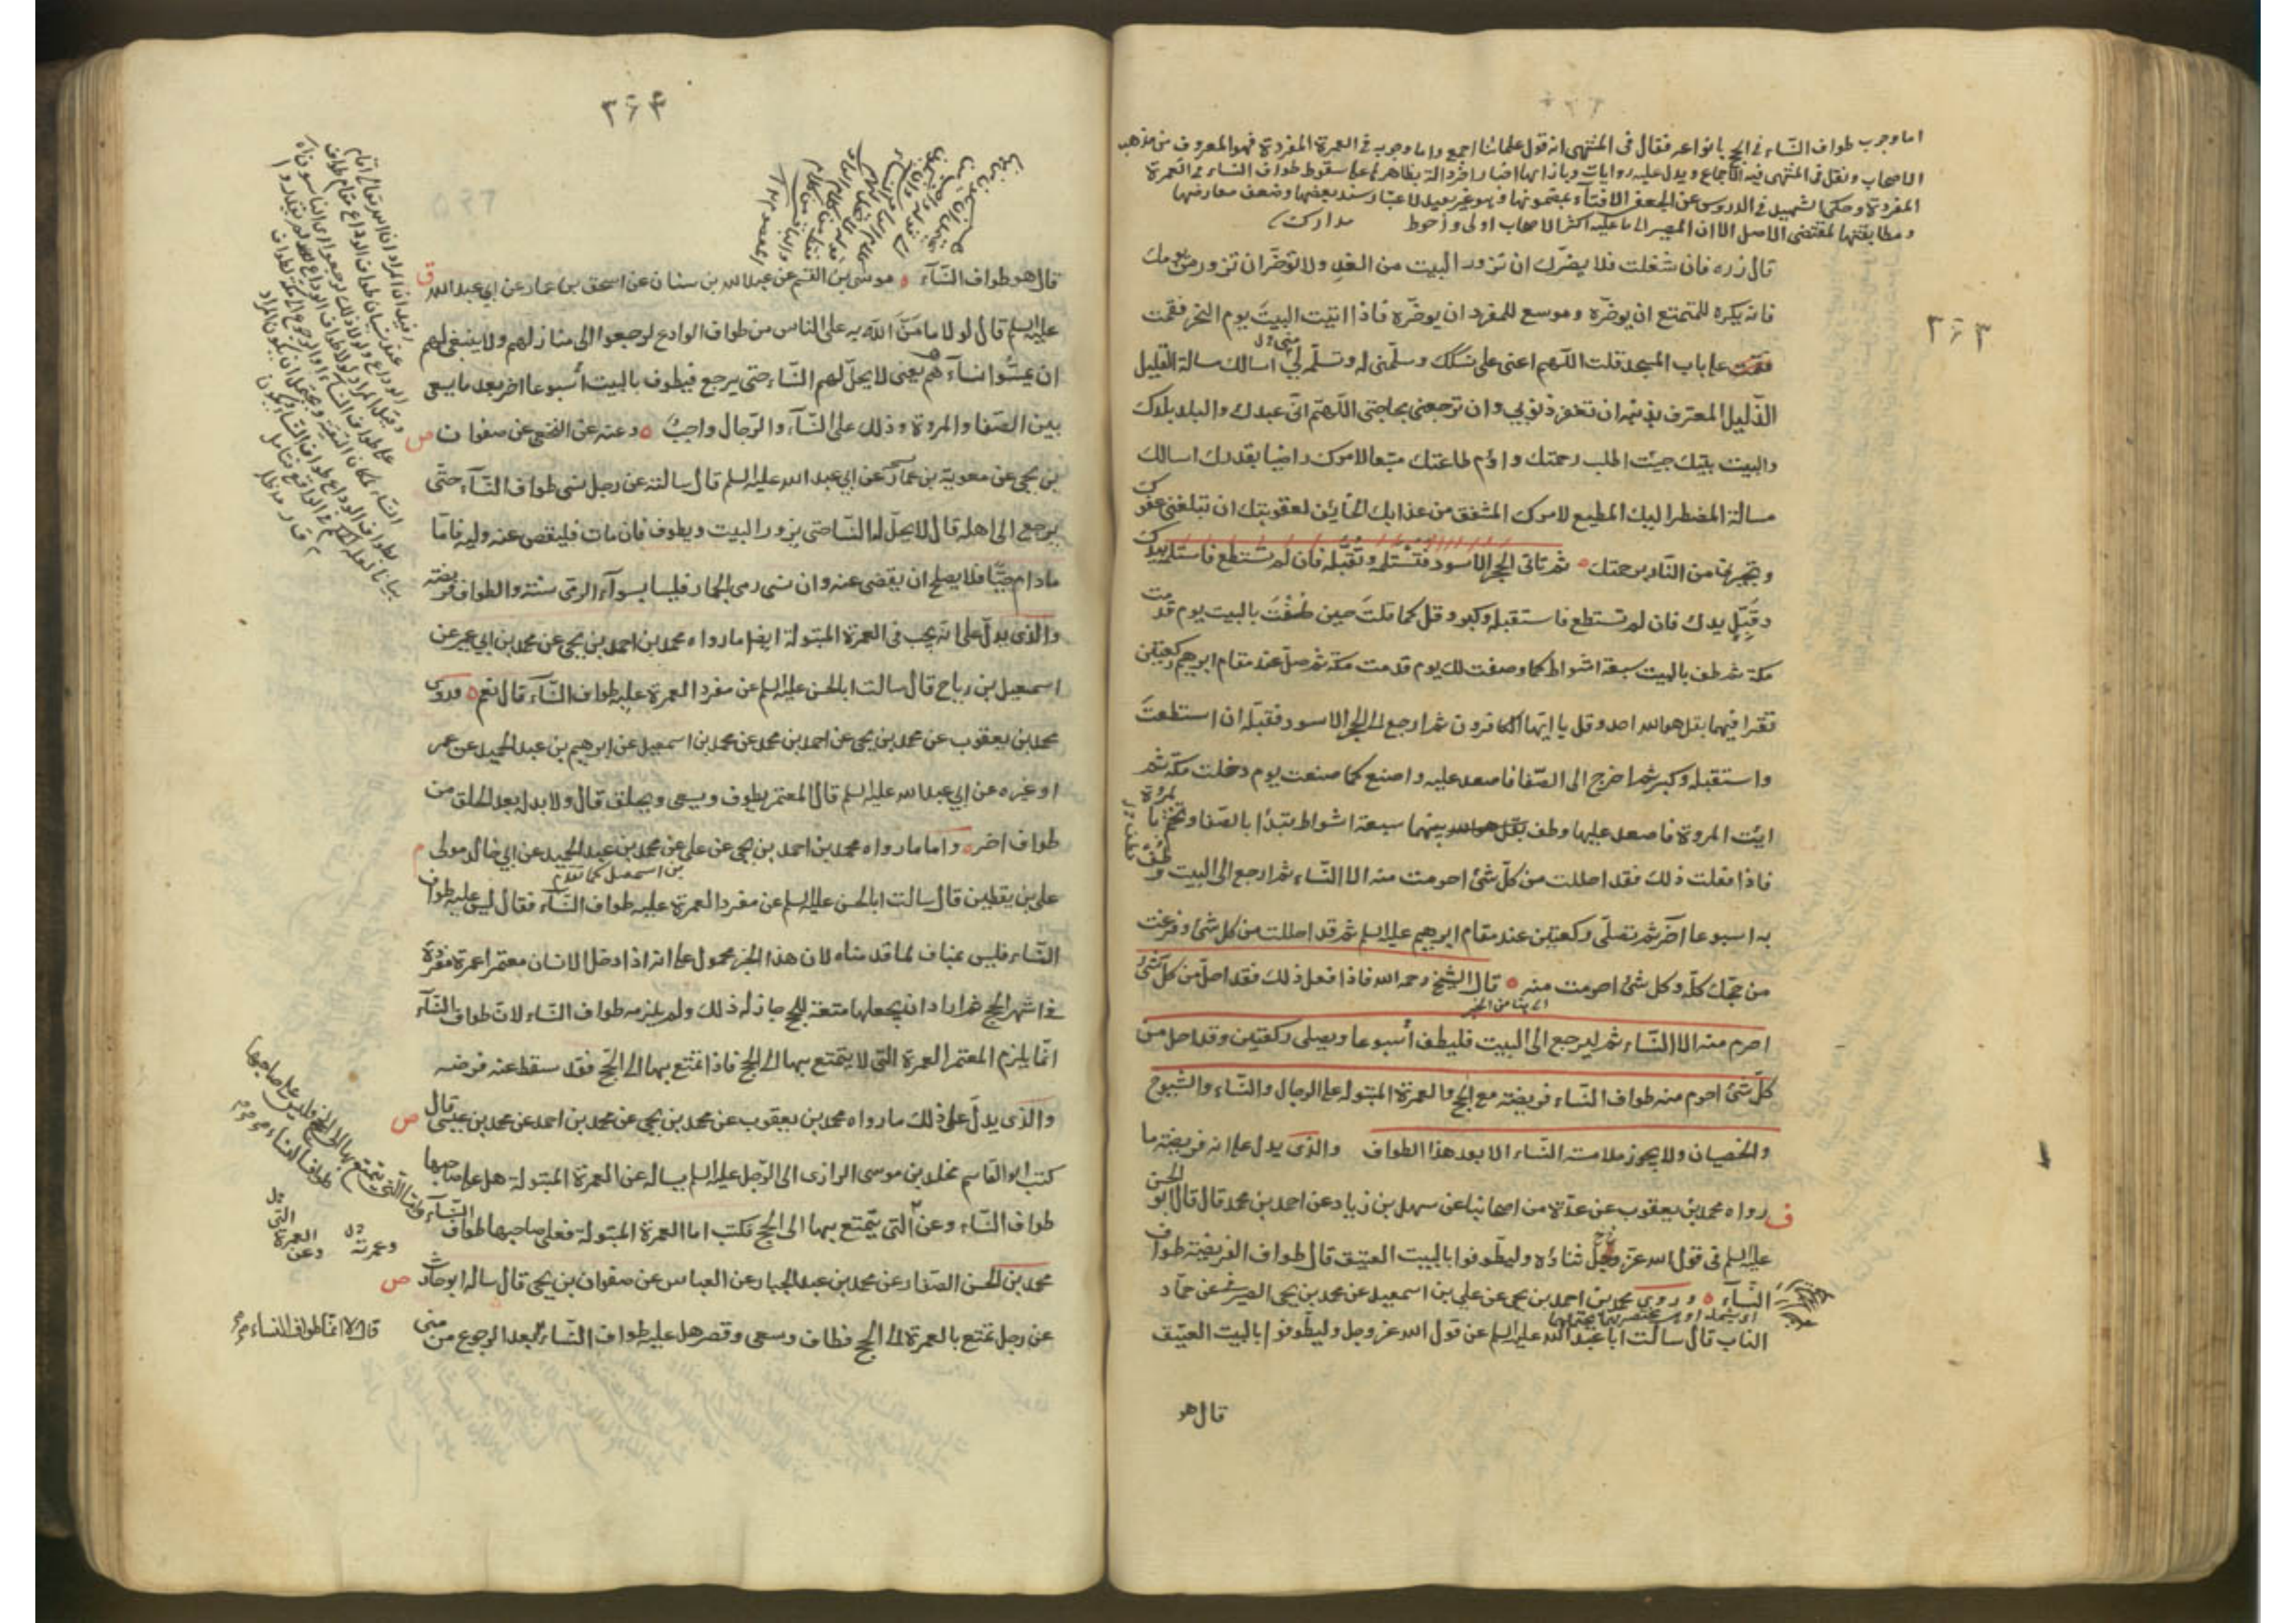 ٣٦٣
اما وجوب طواف النساء في الحج بانواعه فقال في المنتهى انه قول علمائنا اجمع واما وجوبه في العمرة المفردة فهو المعروف من مذهب
الاصحاب ونقل في المنتهى فيه الاجماع ويدل عليه روايات وبازائها اخبار اخر دالة بظاهرها على سقوط طواف النساء في العمرة
المفردة وحكى الشهيد في الدروس عن الجعفي الافتاء بمضمونها وهو غير بعيد لاعتبار سند بعضها وضعف معارضها
ومطابقتها لمقتضى الاصل الا ان المصير الى ما عليه اكثر الاصحاب اولى واحوط مدارك
قال زره فان شغلت فلا يضرك ان تزور البيت من الغد ولا تؤخر ان تزور من يومك
فانه يكره للمتمتع ان يؤخره وموسع للمفرد ان يؤخره فاذا اتيت البيت يوم النحر فقمت
على باب المسجد قلت اللهم اعني على نسكك وسلمني له وتسلمه لي اسالك مسالة القليل
الذليل المعترف بذنبه ان تغفر ذنوبي وان ترجعني بحاجتي اللهم اني عبدك والبلد بلدك
والبيت بيتك جئت اطلب رحمتك واؤم طاعتك متبعا لامرك راضيا بقدرك اسالك
مسالة المضطر اليك المطيع لامرك المشفق من عذابك الخائف لعقوبتك ان تبلغني عفوك
وتجيرني من النار برحمتك ثم تاتي الحجر الاسود فتستلمه وتقبله فان لم تستطع فاستلمه بيدك
وقبل يدك فان لم تستطع فاستقبله وكبر وقل كما قلت حين طفت بالبيت يوم قدمت
مكة ثم طف بالبيت سبعة اشواط كما وصفت لك يوم قدمت مكة ثم صل عند مقام ابرهيم ركعتين
تقرا فيهما بقل هو الله احد وقل يا ايها الكافرون ثم ارجع الى الحجر الاسود فقبله ان استطعت
واستقبله وكبر ثم اخرج الى الصفا فاصعد عليه واصنع كما صنعت يوم دخلت مكة ثم
ايت المروة فاصعد عليها وطف بينهما سبعة اشواط تبدأ بالصفا وتختم بالمروة
فاذا فعلت ذلك فقد احللت من كل شئ احرمت منه الا النساء ثم ارجع الى البيت وطف
به اسبوعا آخر ثم تصلي ركعتين عند مقام ابرهيم عليه السلم ثم قد احللت من كل شئ وفرغت
من حجك كله وكل شئ احرمت منه قال الشيخ رحمه الله فاذا فعل ذلك فقد احل من كل شئ
احرم منه الا النساء ثم ليرجع الى البيت فليطف أسبوعا ويصلي ركعتين وقد احل من
كل شئ احرم منه طواف النساء فريضة مع الحج والعمرة المبتولة على الرجال والنساء والشيوخ
والخصيان ولا يجوز ملامسة النساء الا بعد هذا الطواف والذي يدل على انه فريضة ما
رواه محمد بن يعقوب عن عدة من اصحابنا عن سهل بن زياد عن احمد بن محمد قال قال ابو الحسن
عليه السلم في قول الله عز وجل ثناؤه وليطوفوا بالبيت العتيق قال طواف الفريضة طواف
النساء وروى محمد بن احمد بن يحيى عن علي بن اسمعيل عن محمد بن يحيى الصيرفي عن حماد
الناب قال سالت ابا عبد الله عليه السلم عن قول الله عز وجل وليطوفوا بالبيت العتيق
قال هو
٣٦٤
قال هو طواف النساء موسى بن القسم عن عبد الله بن سنان عن اسحق بن عمار عن ابي عبد الله
عليه السلم قال لولا ما من الله به على الناس من طواف الوادع لرجعوا الى منازلهم ولا ينبغي لهم
ان يمسوا نساءهم يعني لا يحل لهم النساء حتى يرجع فيطوف بالبيت أسبوعا اخر بعد ما يسعى
بين الصفا والمروة وذلك على النساء والرجال واجب وعنه عن النخعي عن صفوان
بن يحيى عن معوية بن عمار عن ابي عبد الله عليه السلم قال سالته عن رجل نسي طواف النساء حتى
يرجع الى اهله قال لا يحل له النسا حتى يزور البيت ويطوف فان مات فليقض عنه وليه فاما
مادام حيا فلا يصلح ان يقضى عنه وان نسي رمي الجمار فليسا بسواء الرمي سنة والطواف فريضة
والذي يدل على انه يجب في العمرة المبتولة ايضا ما رواه محمد بن احمد بن يحيى عن محمد بن ابي عمير عن
اسمعيل بن رباح قال سالت ابا الحسن عليه السلم عن مفرد العمرة عليه طواف النساء قال نعم وروى
محمد بن يعقوب عن محمد بن يحيى عن احمد بن محمد عن محمد بن اسمعيل عن ابرهيم بن عبد الحميد عن عمر
او غيره عن ابي عبد الله عليه السلم قال المعتمر يطوف ويسعى ويحلق قال ولا بد له بعد الحلق من
طواف اخر واما ما رواه محمد بن احمد بن يحيى عن علي عن محمد بن عبد الحميد عن ابي خالد مولى
علي بن يقطين قال سالت ابا الحسن عليه السلم عن مفرد العمرة عليه طواف النساء فقال ليس عليه طواف
النساء فليس بمناف لما قدمناه لان هذا الخبر محمول على انه اذا دخل الانسان معتمرا عمرة مفردة
في اشهر الحج ثم اراد ان يجعلها متعة للحج جاز له ذلك ولم يلزمه طواف النساء لان طواف النساء
انما يلزم المعتمر العمرة التي لا يتمتع بها الى الحج فاذا تمتع بها الى الحج فقد سقط عنه فرضه
والذي يدل على ذلك ما رواه محمد بن يعقوب عن محمد بن يحيى عن محمد بن احمد عن محمد بن عيسى قال
كتب ابو القاسم مخلد بن موسى الرازي الى الرجل عليه السلم يساله عن العمرة المبتولة هل على صاحبها
طواف النساء وعن التي يتمتع بها الى الحج فكتب اما العمرة المبتولة فعلى صاحبها طواف النساء
واما التي يتمتع بها الى الحج فليس على صاحبها
طواف النساء
محمد بن الحسن الصفار عن محمد بن عبد الجبار عن العباس عن صفوان بن يحيى قال ساله ابو حارث
عن رجل تمتع بالعمرة الى الحج فطاف وسعى وقصر هل عليه طواف النساء
قال لا انما طواف النساء
بعد الرجوع من منى